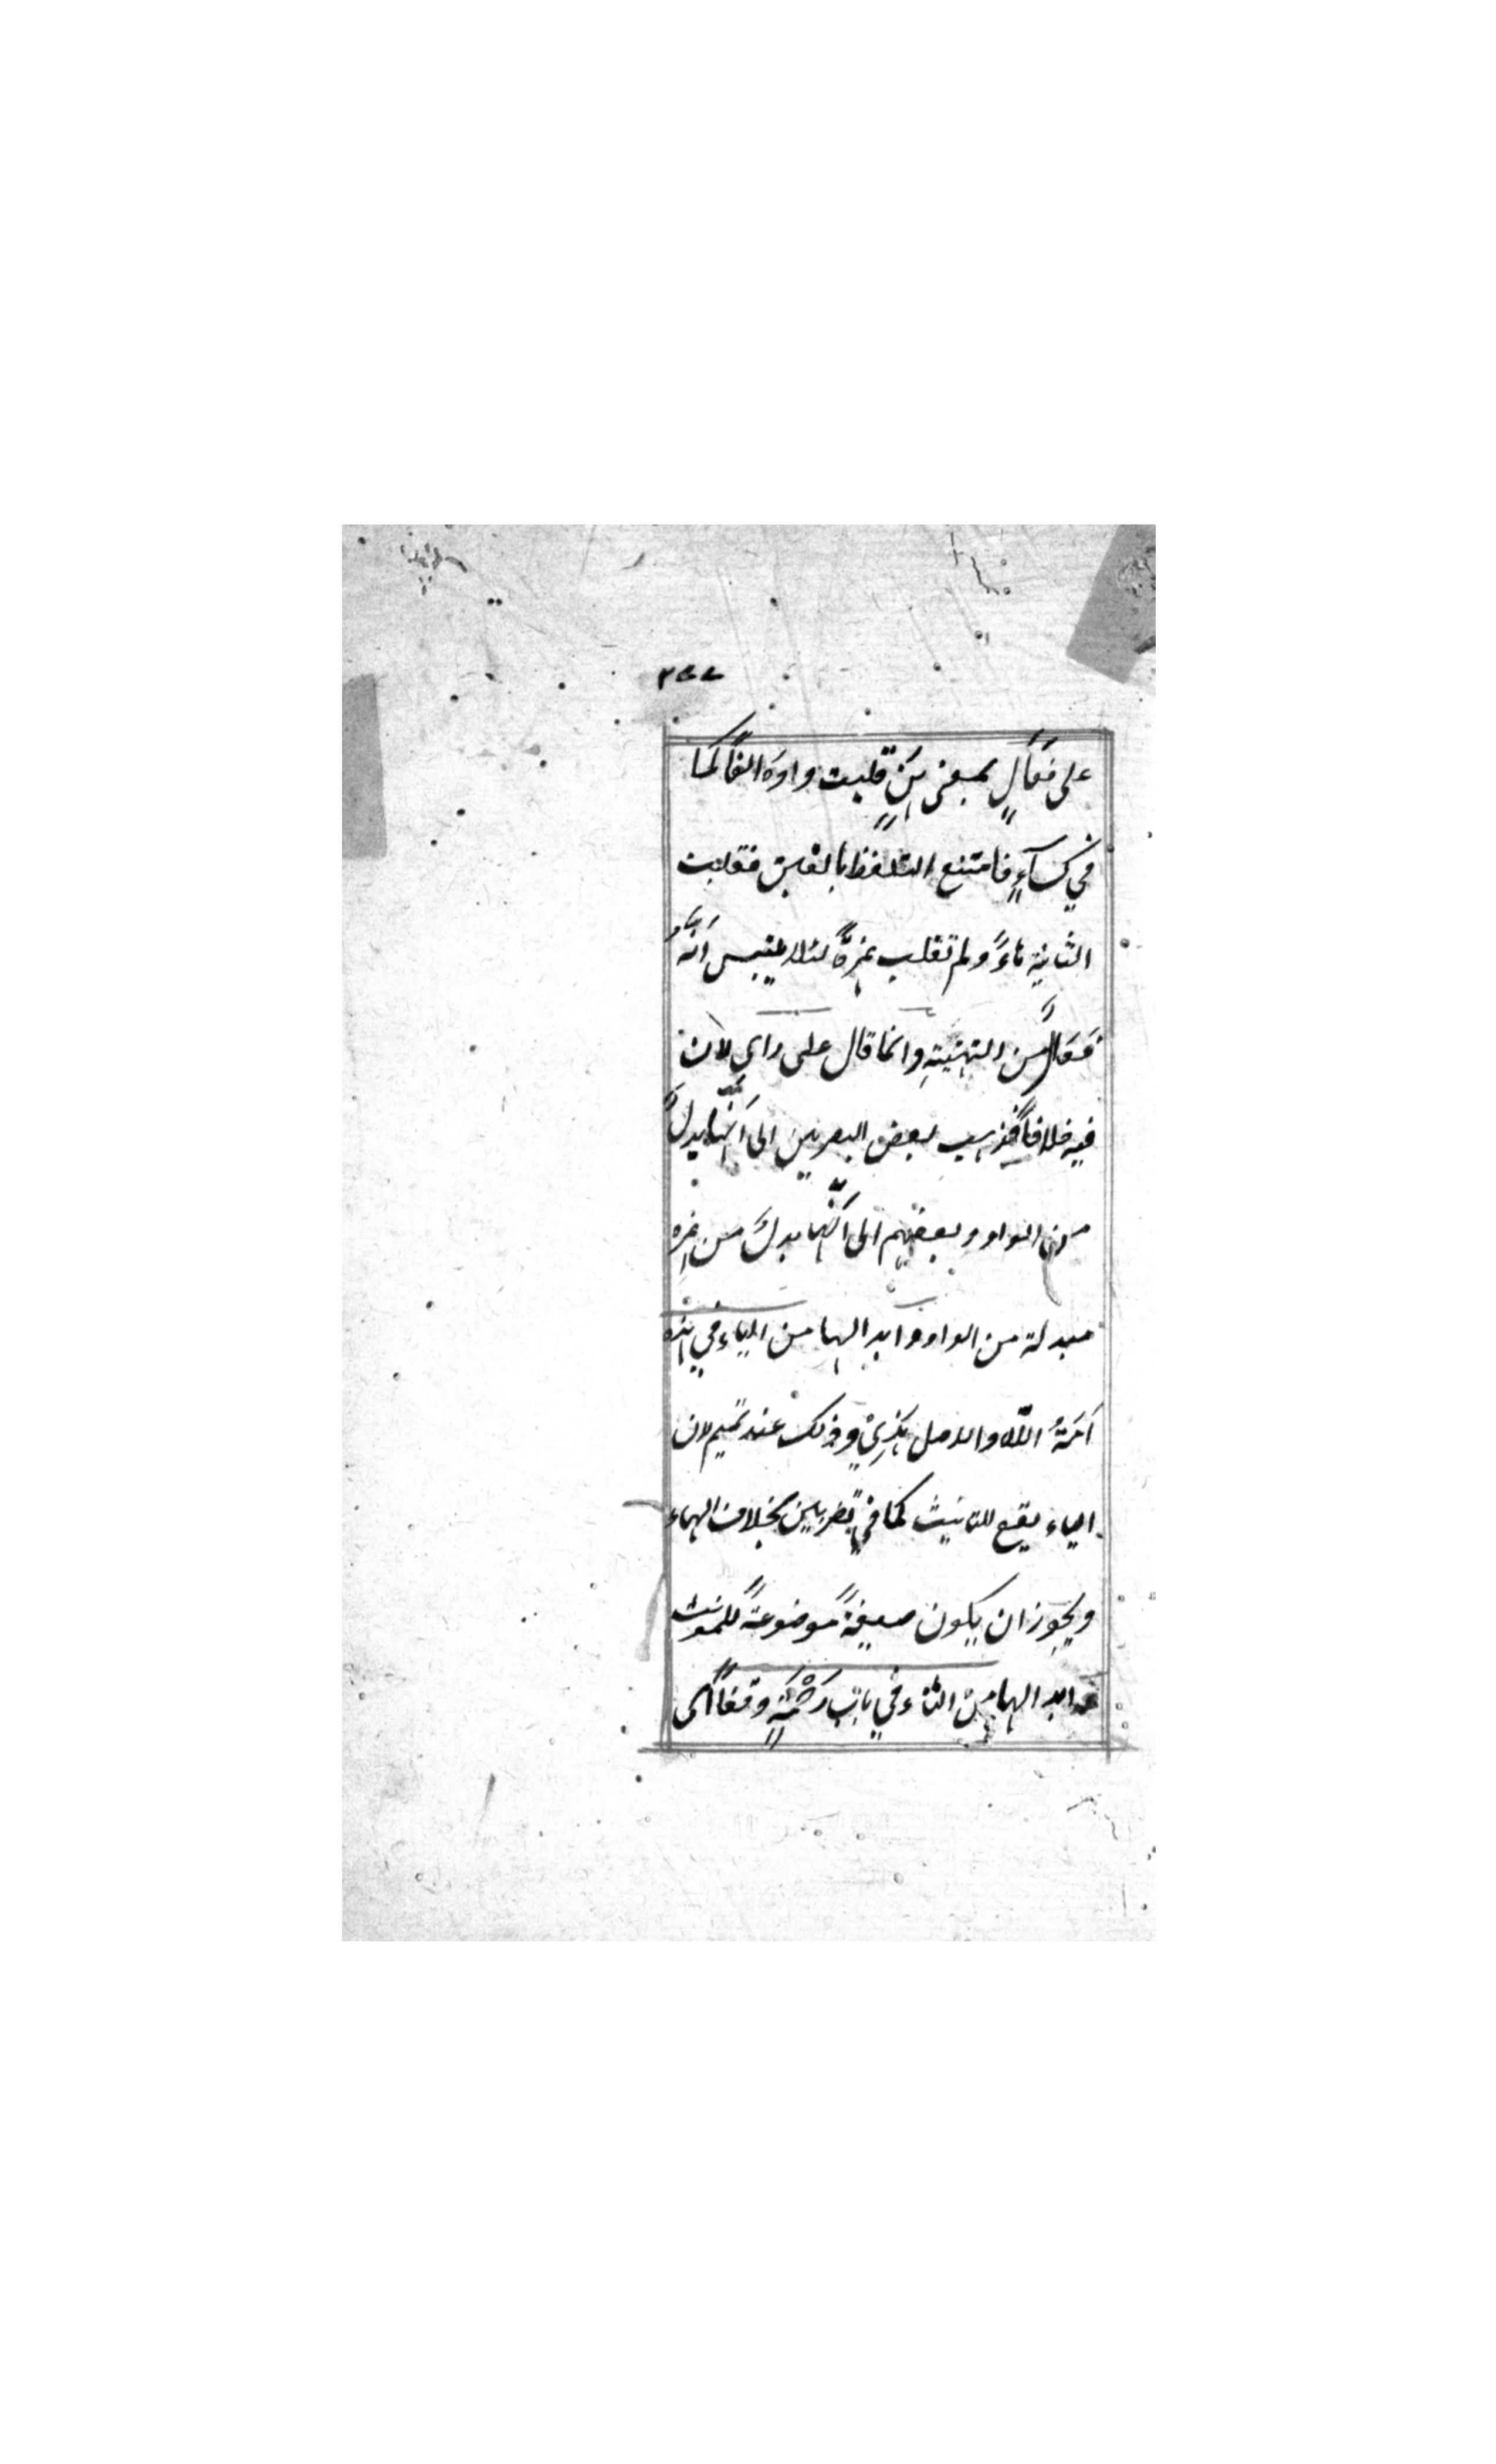 ٢٧٧
على فَعَالٍ بمعنى هَنٍ قلبت واوه الفًا كما
في كسآءٍ فامتنع التلفظ بالفين فقلبت
الثانية هاءً ولم تقلب همزةً لئلا يلتبس انّهُ
فَعَالٌ من التهنيةِ وانما قال على راي لان
فيه خلافًا فذهب بعض البصريين الى انّها بدلٌ
من الواو وبعضهم الى انّها بدل من همزة
مبدلة من الواو وابدالها من الياء في هذه
اَمَةُ اللّه والاصل هذِيْ وذلك عند تميم لان
الياء يقع للتانيث كما في تضربين بخلاف الهاء
ويجوز ان يكون صيغةً موضوعةً للمونث
وابدالها من التاء في باب رَحْمَةٍ وقفًا